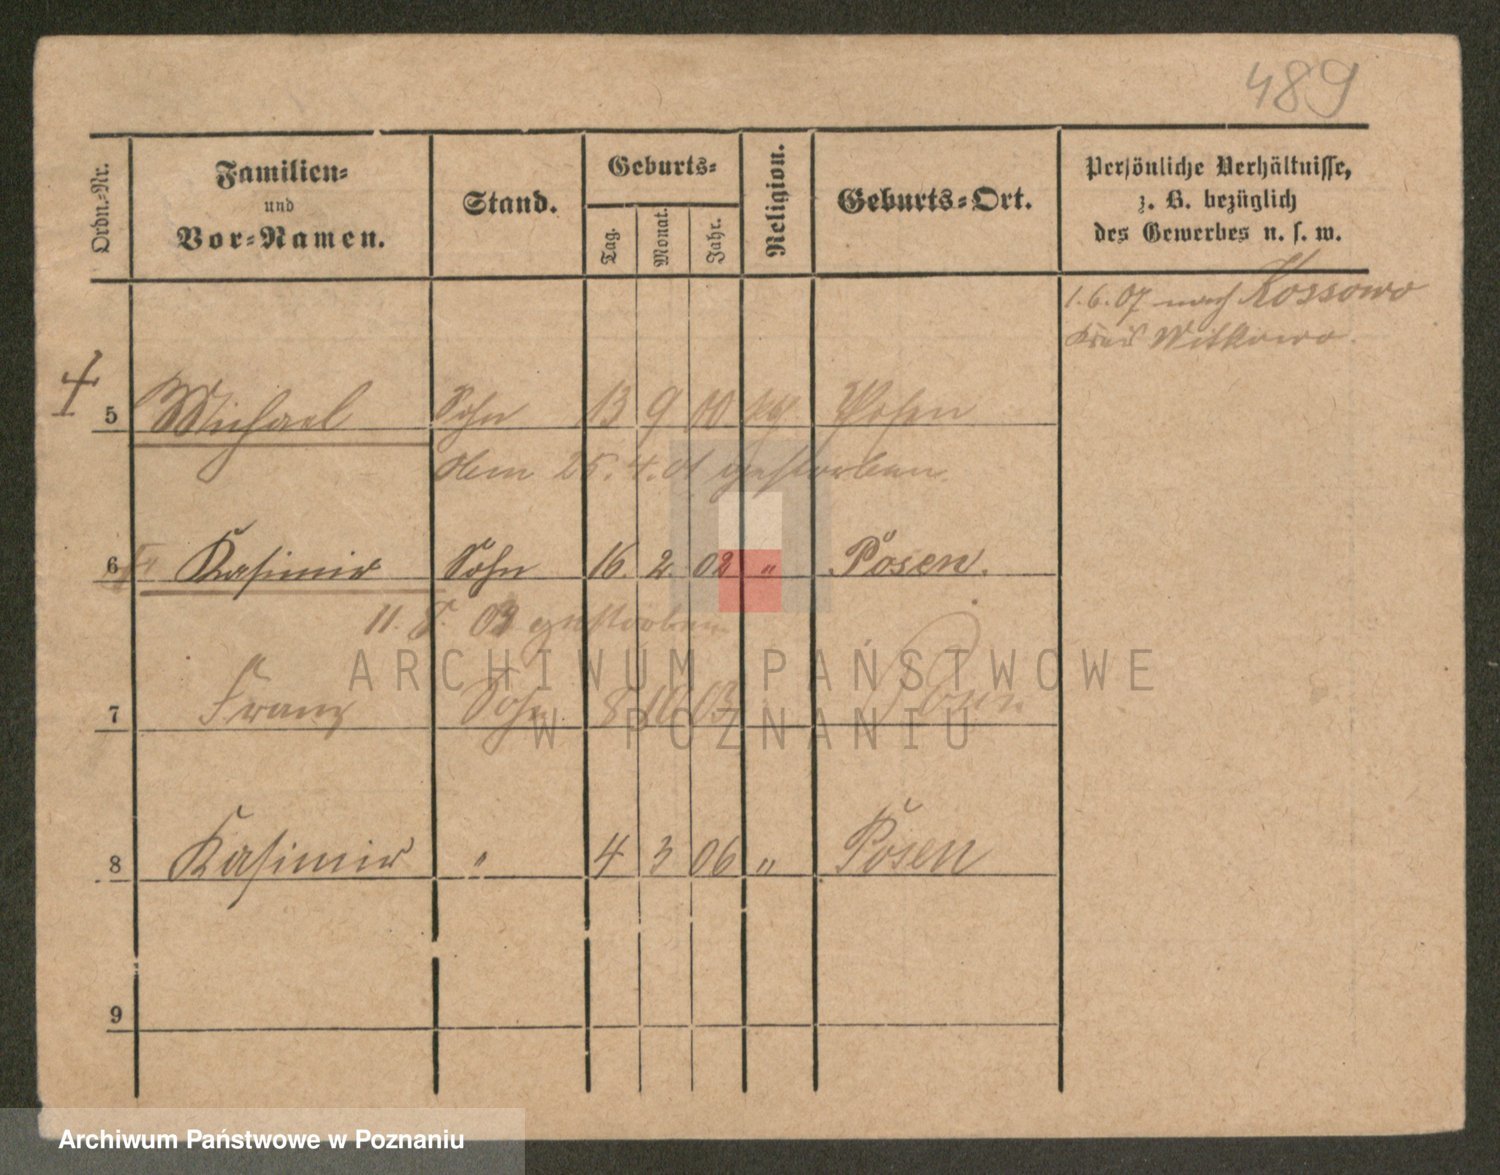 489
Ordn.-Nr.
Familien-
und
Vor-Namen.
Stand.
Geburts-
Tag.
Monat.
Jahr.
Religion.
Geburts-Ort.
Persönliche Verhältnisse,
z. B. bezüglich
des Gewerbes u. s. w.
1.6.07 nach Kossowo
Kreis Witkowo.
5 Michael Sohn 13 9 00 Posen
den 25.4.01 gestorben.
6 Kasimir Sohn 16. 2. 02 " Posen.
11. 8. 03 gestorben
7 Franz Sohn 8 10 03 Posen
8 Kasimir " 4 3 06 " Posen
9
ARCHIWUM PAŃSTWOWE
W POZNANIU
Archiwum Państwowe w Poznaniu